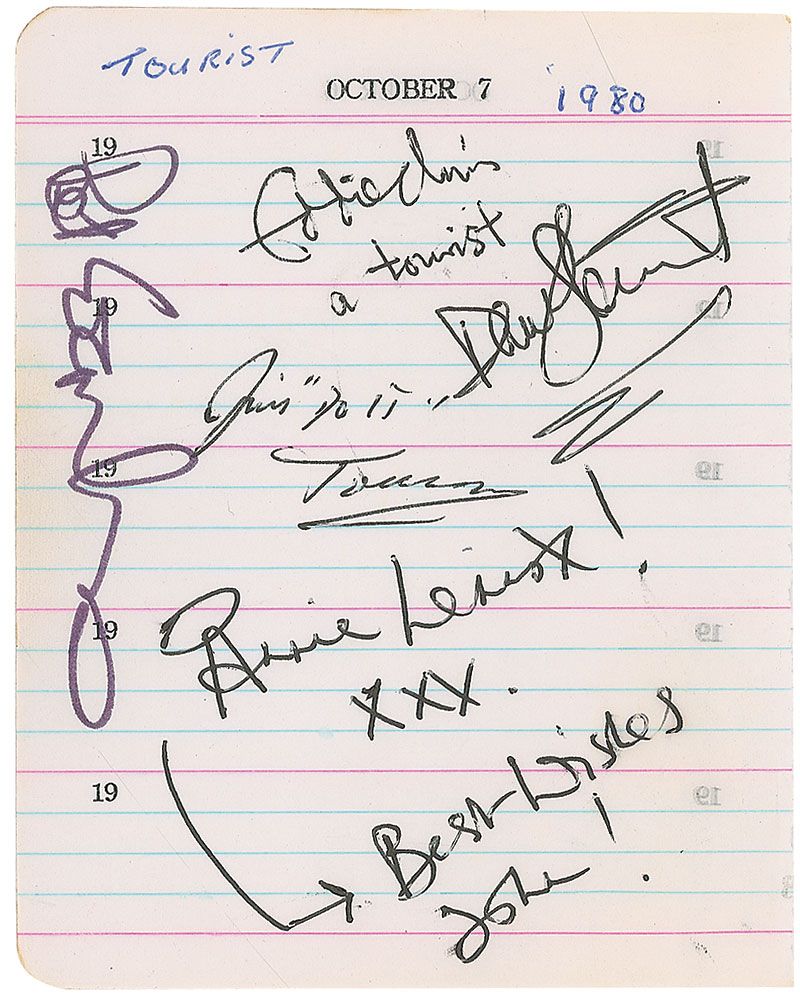 TOURIST
OCTOBER 7 1980
19
Eddie Chin
a tourist
19
Dave Stewart
Jim "Do It"
Toomey
19
Annie Lennox!
19
XXX.
19
Best Wishes
John!